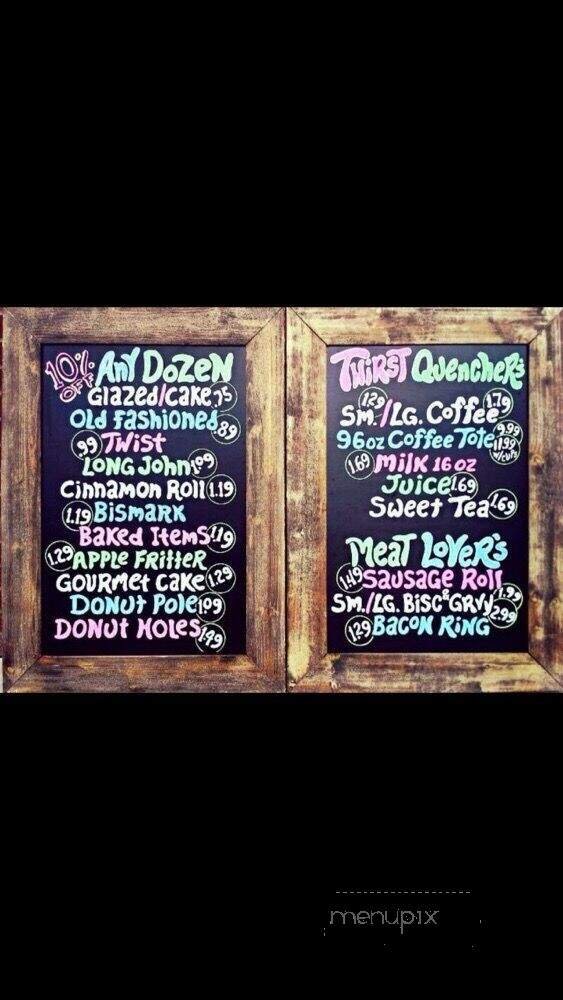 10% OFF Any Dozen
Glazed/Cake .75
Old Fashioned .89
.99 Twist
Long John 1.09
Cinnamon Roll 1.19
1.19 Bismark
Baked Items 1.19
1.29 Apple Fritter
Gourmet Cake 1.29
Donut Pole 1.09
Donut Holes 1.49
Thirst Quencher's
1.29 1.79
Sm./Lg. Coffee
96oz Coffee Tote 9.99
11.99 w/cups
1.69 Milk 16 oz
Juice 1.69
Sweet Tea 1.69
Meat Lover's
1.49 Sausage Roll
Sm./Lg. Bisc & Grvy 1.99
2.99
1.29 Bacon Ring
menupix